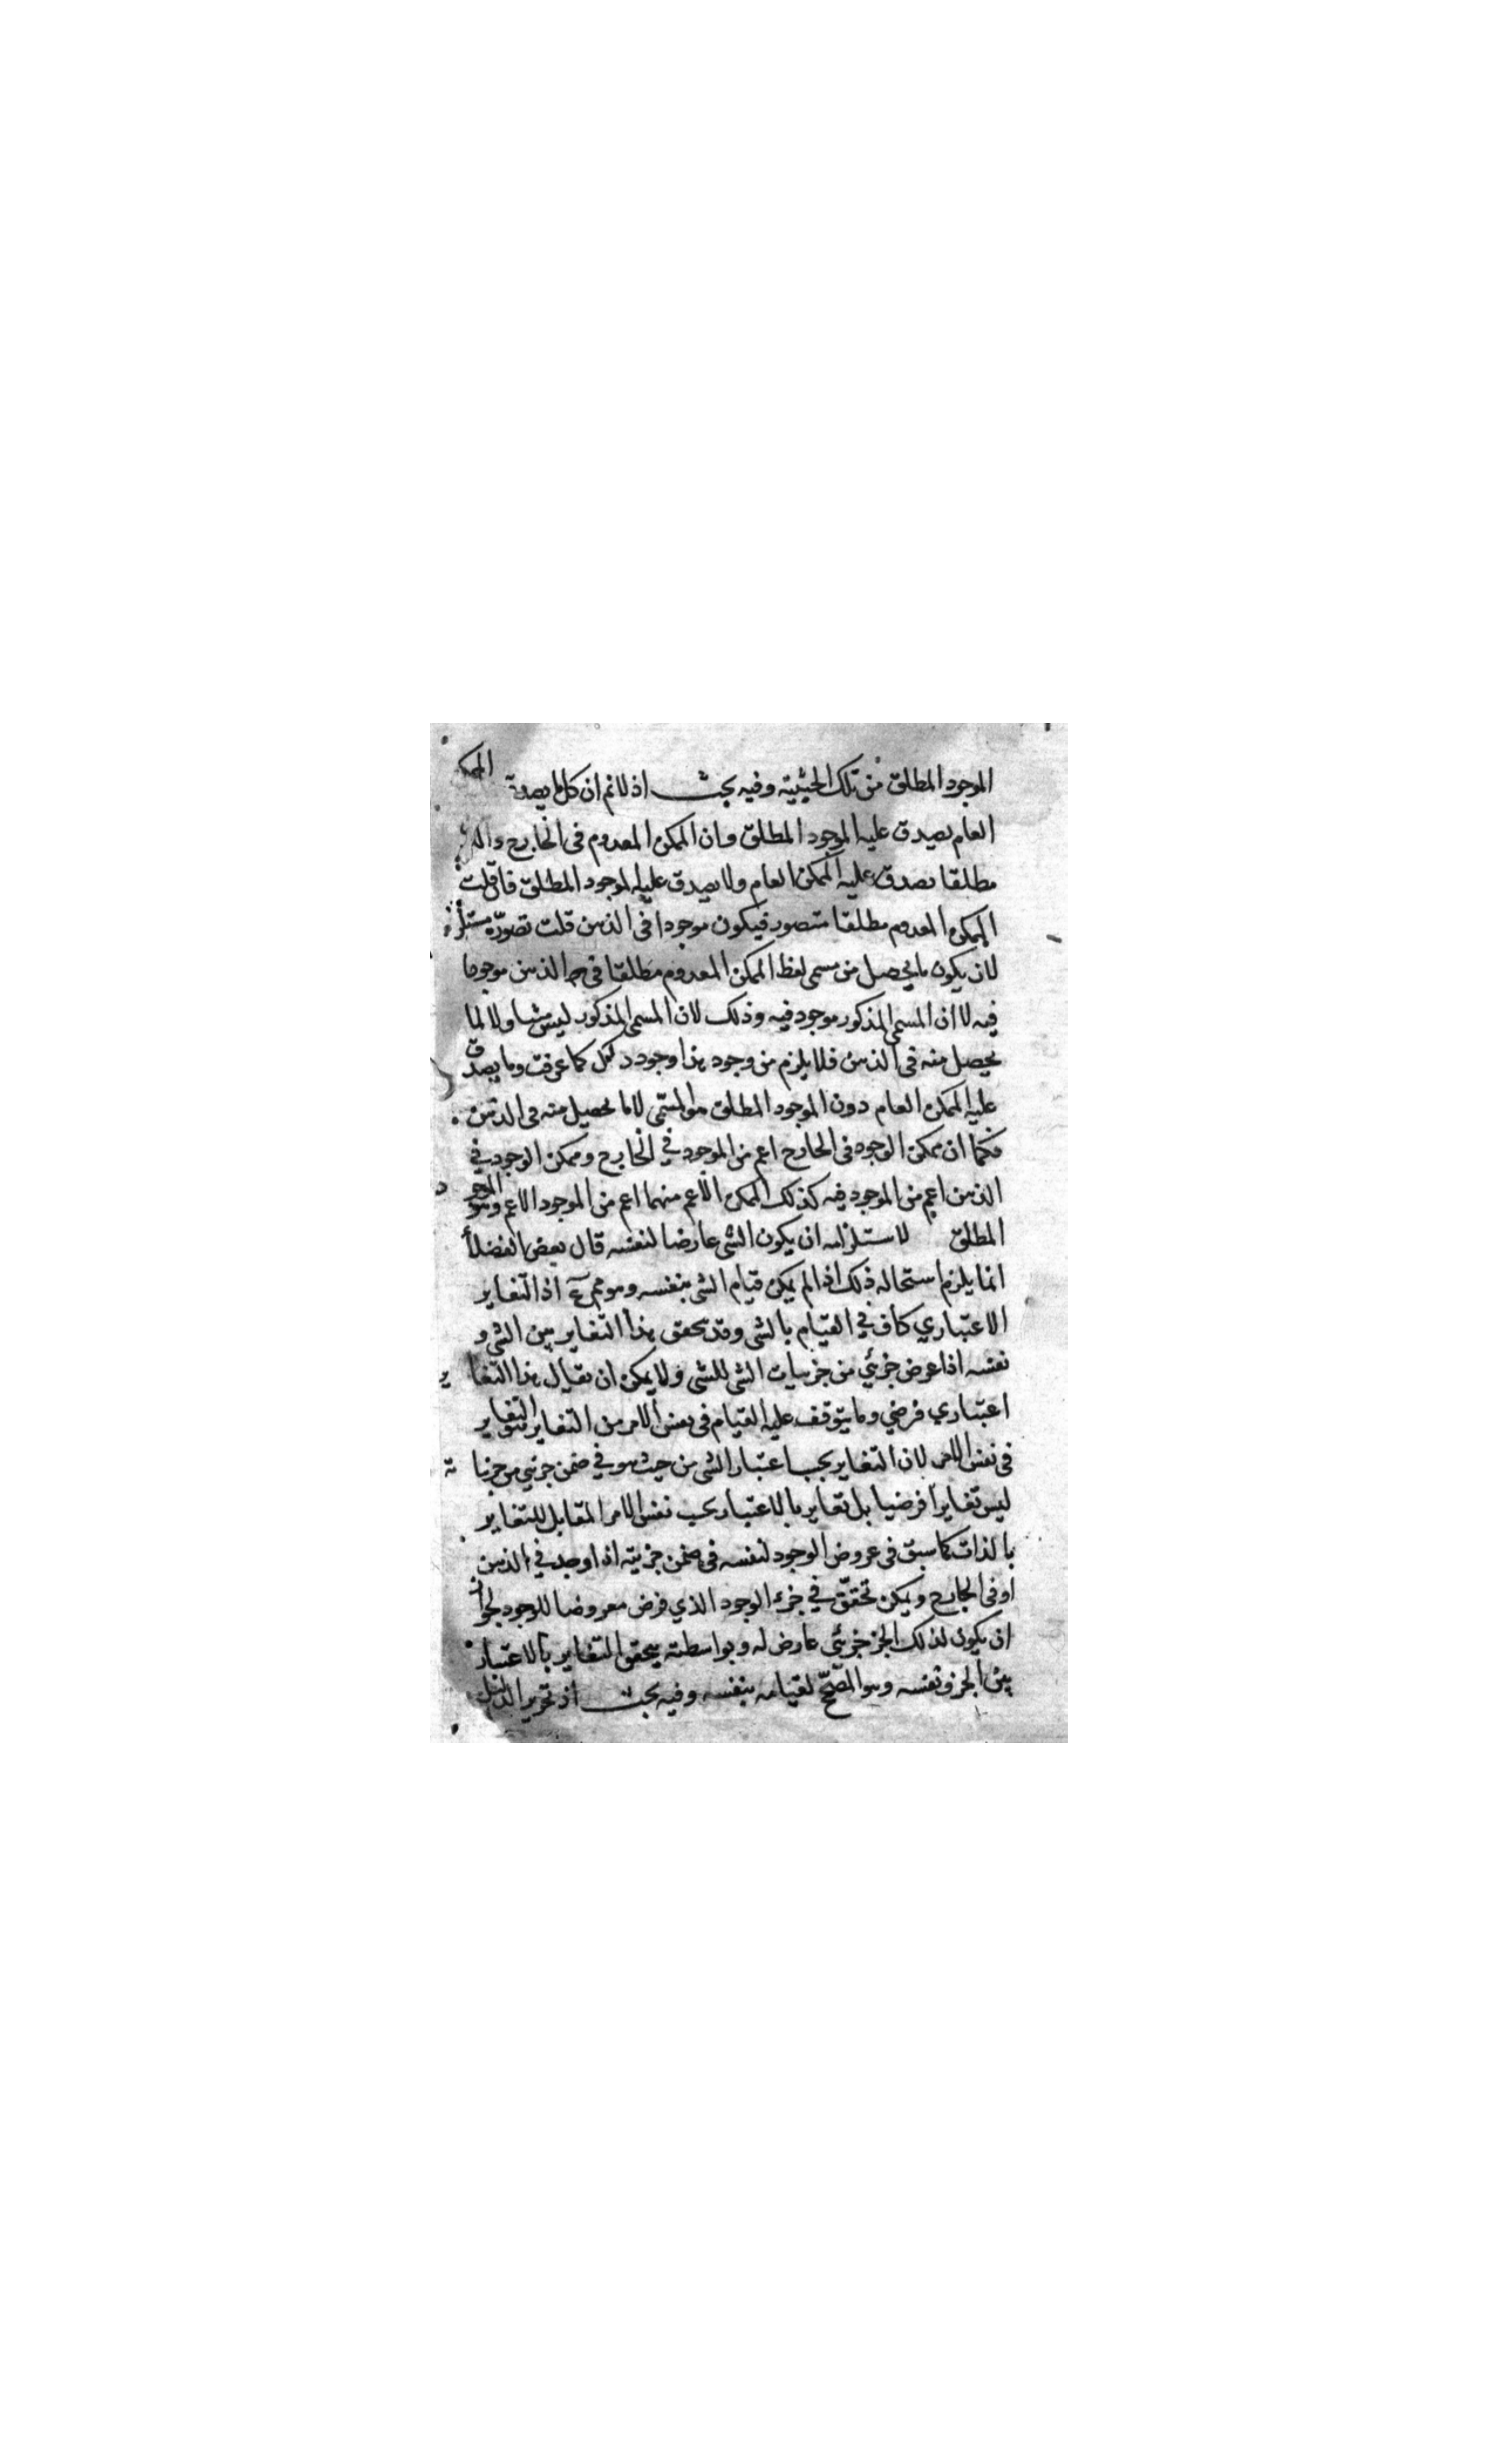 الموجود المطلق من تلك الحيثية وفيه بحث اذ لا نم ان كل ما يصدق الممكن
العام يصدق عليه الموجود المطلق وان الممكن المعدوم فى الخارج والذ
مطلقا يصدق عليه الممكن العام ولا يصدق عليه الموجود المطلق فان قلت
الممكن المعدوم مطلقا متصور فيكون موجودا فى الذهن قلت تصوره مستلزم
لان يكون ما يحصل من مسمى لفظ الممكن المعدوم مطلقا فى الذهن موجودا
فيه لا ان المسمى المذكور موجود فيه وذلك لان المسمى المذكور ليس مثا ولا لما
يحصل منه فى الذهن فلا يلزم من وجود هذا وجود ذلك كما عرفت وما يصدق
عليه الممكن العام دون الموجود المطلق هو المسمى لا ما يحصل منه فى الذهن
فكما ان ممكن الوجود فى الخارج اعم من الموجود في الخارج وممكن الوجود في
الذهن اعم من الموجود فيه كذلك الممكن الاعم منهما اعم من الموجود الاعم وهو الموجود
المطلق لاستلزامه ان يكون الشى عارضا لنفسه قال بعض الفضلأ
انما يلزم استحاله ذلك اذا لم يكن قيام الشى بنفسه وهو مم اذ التغاير
الاعتباري كاف في القيام بالشى وقد تحقق هذا التغاير بين الشى و
نفسه اذا عرض جزئي من جزئيات الشى للشى ولا يمكن ان يقال هذا التغاير
اعتباري فرضي وما يتوقف عليه القيام فى نفس الامر من التغاير هو التغاير
فى نفس الامر لان التغاير بحسب اعتبار الشى من حيث هو في ضمن جزئي من جزئياته
ليس تغايرا فرضيا بل تغاير بالاعتبار بحسب نفس الامر المقابل للتغاير
بالذات كما سبق فى عروض الوجود لنفسه فى ضمن جزئيته اذا وجد في الذهن
او فى الخارج ويمكن تحقق في جزء الوجود الذي فرض معروضا للوجود لجواز
ان يكون لذلك الجز جزئي عارض له وبواسطته يتحقق التغاير بالاعتبار
بين الجز ونفسه وهو المصحح لقيامه بنفسه وفيه بحث اذ تحرير الدليل